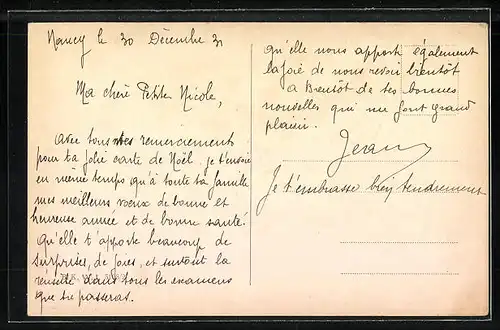 Nancy le 30 Décembre 31
Ma chère Petite Nicole,
Avec tous mes remerciements
pour ta jolie carte de Noël. je t'envoie
en même temps qu'à toute ta famille
mes meilleurs voeux de bonne et
heureuse année et de bonne santé.
Qu'elle t'apporte beaucoup de
surprises, de joies, et surtout la
réussite dans tous les examens
que tu passeras.
qu'elle nous apporte également
la joie de nous revoir bientôt
a Bientôt de tes bonnes
nouvelles qui me font grand
plaisir.
Jean
Je t'embrasse bien tendrement